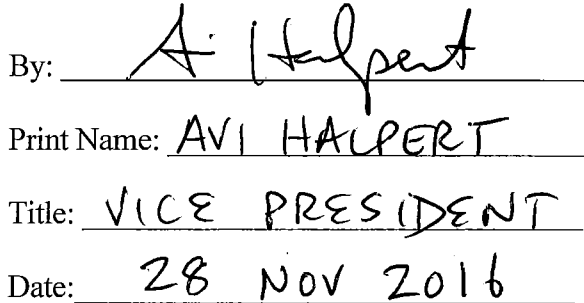 By: Avi Halpert
Print Name: AVI HALPERT
Title: VICE PRESIDENT
Date: 28 NOV 2016